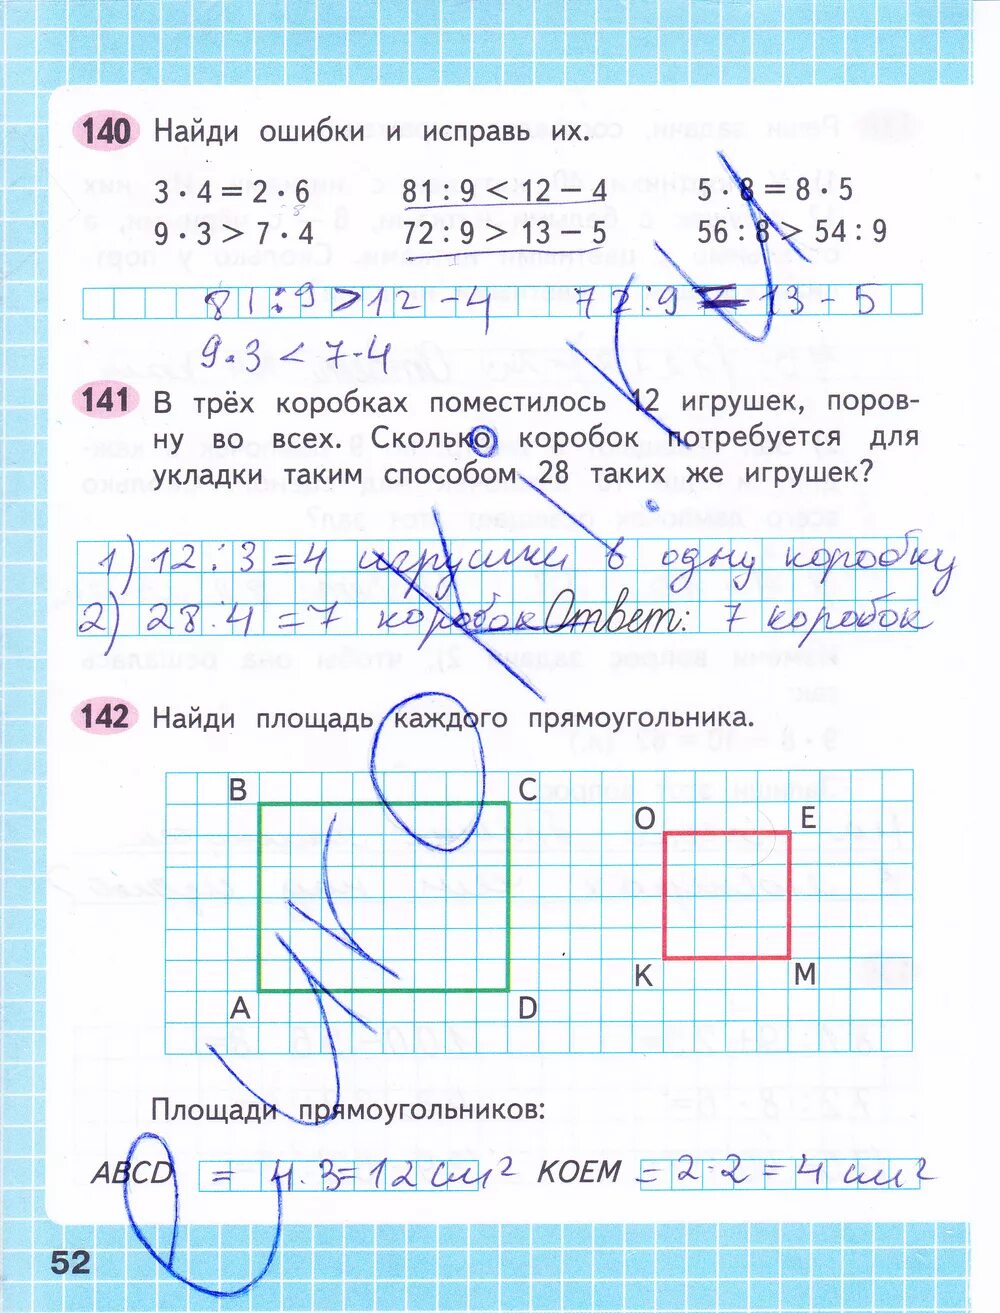 140 Найди ошибки и исправь их.
3 · 4 = 2 · 6 81 : 9 < 12 − 4 5 · 8 = 8 · 5
9 · 3 > 7 · 4 72 : 9 > 13 − 5 56 : 8 > 54 : 9
81 : 9 > 12 - 4 72 : 9 = 13 - 5
9 · 3 < 7 · 4
141 В трёх коробках поместилось 12 игрушек, поров-
ну во всех. Сколько коробок потребуется для
укладки таким способом 28 таких же игрушек?
1) 12 : 3 = 4 игрушки в одну коробку
2) 28 : 4 = 7 коробок Ответ: 7 коробок
142 Найди площадь каждого прямоугольника.
B C
O E
K M
A D
Площади прямоугольников:
ABCD = 4·3=12 см² KOEM = 2·2=4 см²
52